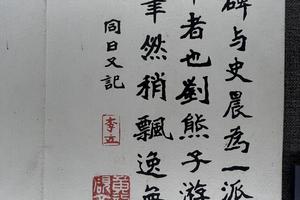 碑与史晨為一派
者也劉熊子游
筆然稍飄逸
同日又記